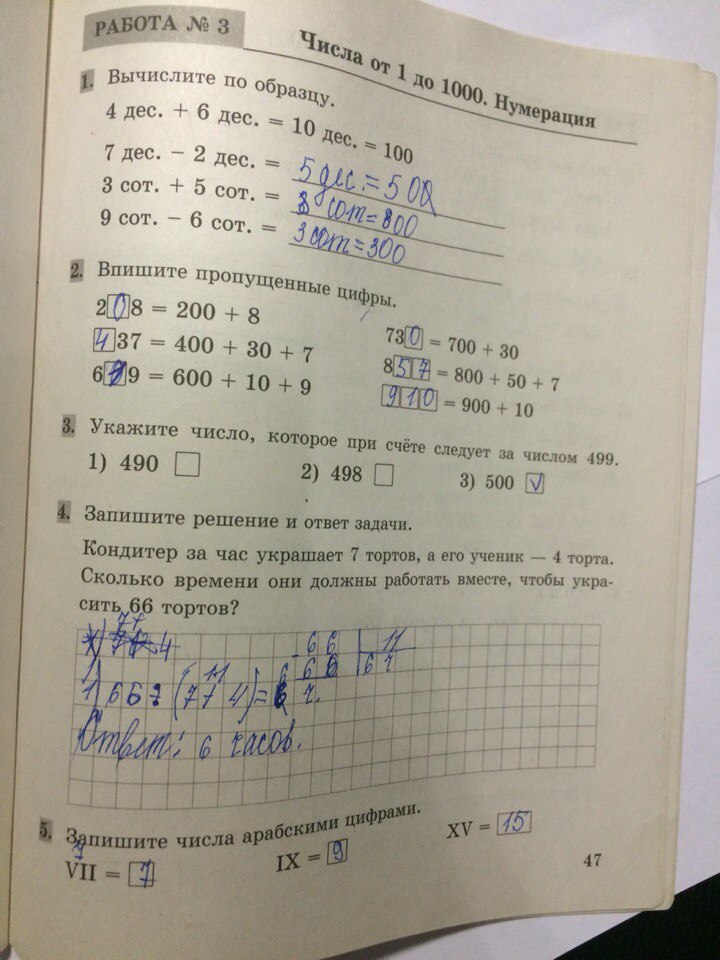 РАБОТА № 3
Числа от 1 до 1000. Нумерация
1. Вычислите по образцу.
4 дес. + 6 дес. = 10 дес. = 100
7 дес. − 2 дес. = 5 дес. = 500
3 сот. + 5 сот. = 8 сот = 800
9 сот. − 6 сот. = 3 сот = 300
2. Впишите пропущенные цифры.
208 = 200 + 8
730 = 700 + 30
437 = 400 + 30 + 7
857 = 800 + 50 + 7
6 9 = 600 + 10 + 9
910 = 900 + 10
3. Укажите число, которое при счёте следует за числом 499.
1) 490
2) 498
3) 500 V
4. Запишите решение и ответ задачи.
Кондитер за час украшает 7 тортов, а его ученик — 4 торта.
Сколько времени они должны работать вместе, чтобы укра-
сить 66 тортов?
66 11
66 6 ч
1) 66: (7 + 4) = 6 ч.
Ответ: 6 часов.
5. Запишите числа арабскими цифрами.
VII = 7
IX = 9
XV = 15
47